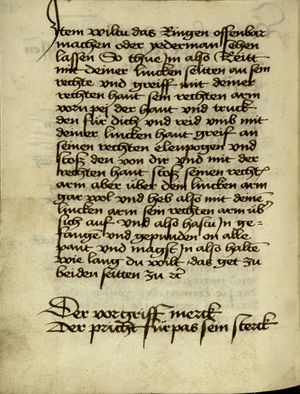 Item wiltu das Ringen offenbar
machen oder yederman sehen
lassen So thue Im also Reitt
mit deiner lincken seitten an sein
rechte und greiff mit deiner
rechten hant sein rechten arm
vorn pej der hant und truck
den für dich und reid umb mit
deiner lincken hant greif an
seinen rechten elenpogen und
stoß den von dir und mit der
rechten hant stoß seinen rechten
arm aber über dem lincken arm
gar wol und heb also mit deine
lincken arm sein rechten arm üb
sich auf und also hastu In ge-
fange und gepunden on alle
pant und magst In also halte
wie lang du wilt das get zu
beiden seitten zu
Der vorgriff merck
Der pricht fürpas sein sterck